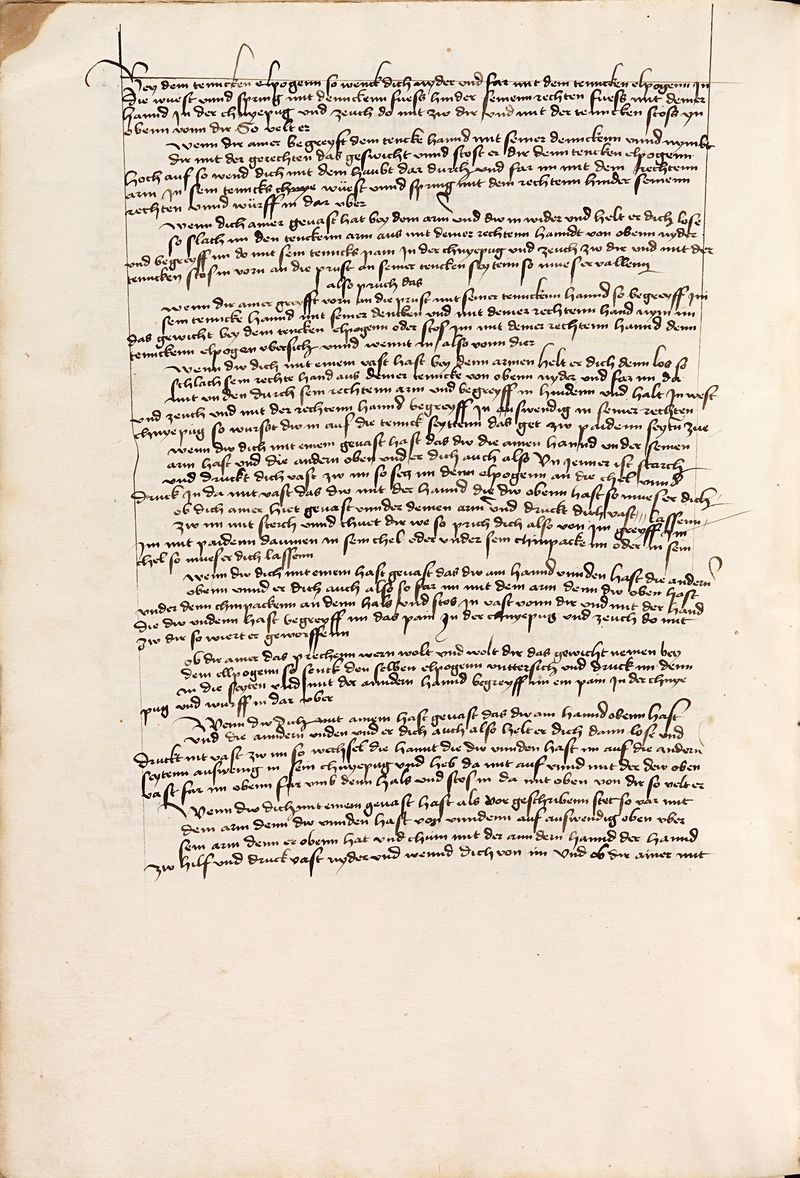 Bey dem tenncken elpogenn so wenck dich nyder vnd far mit dem tenncken elpogenn jn
die wuest vnnd spring mit dennckenn fuess hinder seinenn rechten fuess mit deiner
hannd jn der chnyepug vnd zeuch do mit zw dir vnd mit der tenncken stoss yn
obenn vonn dir So velt er
wenn dir ainer begreyft dein tencke hannd mit seiner dennckenn vnnd nymbt
dir mit der gerechten das geswicht vnnd stost er dir denn tencken elpogenn
hoch auf so wend dich mit dem haubt dar durch vnd far im mit dem rechtenn
arm jn sein tenncks chnye wüest vnnd spring mit dem rechtenn hinder seinenn
rechten vnnd würff in dar vber
wenn dich ainer geuast hat bey dem arm vnd dw in wider vnd helt er dich lose
so slach im den tenckenn arm aus mit deiner rechtenn hanndt von obenn nyder
vnd begreyff im do mit sein tenncks pain jn der chnyepug vnd zeuch zw dir vnd mit der
tenncken stos in vorn an die prust an seiner tencken seytenn so mues er vallenn
also pruch das
wenn dir ainer greyfft vorn an die prust mit seiner tennckenn hannd so begreyff im
sein tenncke hannd mit seiner dencken vnd mit deiner rechtenn hand nym im
das gewicht bey dem tencken elpogenn oder stos im mit deiner rechtenn hannd denn
tennckenn elpogen vbersich vnnd wennt in also vonn dier
wenn dw dich mit einem vast hast bey denn armen helt er dich denn los so
schlach sein rechte hand aus deiner tenncke von obenn nyder vnd far im da
mit vnden durch sein rechtenn arm vnd begreyff in hindenn vnd halt jn vest
vnd zeuch vnd mit der rechtenn hannd begreyff jn auswendig in seiner rechten
chnyepug so wurst dw in auf die tennck seyttenn das get zw paidenn seytn zue
wenn dw dich mit einem geuast hast das dw die ainen hannd vnder seinen
arm hast vnd die andern oben vnd er dich auch also Vn jenner ist starch
vnd druckt dich vast zw im so secz im denn elpogenn an die chel vnnd
druck jn da mit vast das dw mit der hannd die dw obenn hast so mues er dich
ob dich ainer hiet geuast vnnder deinen arm vnd druckt dich vast lassenn
zw im mit sterch vnnd thuet dir we so prich dich also von im greyff im
im mit paidenn daumen in sein chel oder vnder sein chinpacke im oder in sein
chel so mues er dich lassenn
wenn dw dich mit einem hast geuast das dw ain hannd vnnden hast die andern
obenn vnnd er dich auch also so far im mit dem arm denn dw oben hast
vnder denn chinpackenn an denn hals vnd stos jn vast vonn dir vnd mit der hand
die dw vndenn hast begreyff im das pain jn der chnyepug vnd zeuch do mit
zw dir so wiert er geworffenn
ob dir ainer das prechenn wern wolt vnd wolt dir das gewicht nemen bey
dem ellpogenn so senck den selben elpogenn vnttersich vnd druck im denn
in die seyten vnd mit der anndern hannd begreyff im ein pain jn der chnye
pug vnd wurff in dar vber
Wenn dw dich mit ainem hast geuast das dw ain hannd obenn hast
vnd die anndern vnden vnd er dich auch also helt er dich dann lose vnd
druckt nit vast zw im so wechsel die hannt die dw vnnden hast im auf die andern
seytenn auswenig in sein chnyepug vnd heb da mit auf vnnd mit der dew oben
vast far im obenn für vmb denn hals vnd stos in da mit oben von dir so velt er
Wenn dw dich mit einem geuast hast als vor geschribenn stet so var mit
dem arm denn dw vnnden hast von vnndenn auf auswendig oben vber
sein arm denn er obenn hat vnd chum mit der anndern hannd der hannd
zw hilf vnd druck vast nyder vnd wennd dich von im Vnd ob dir ainer mit